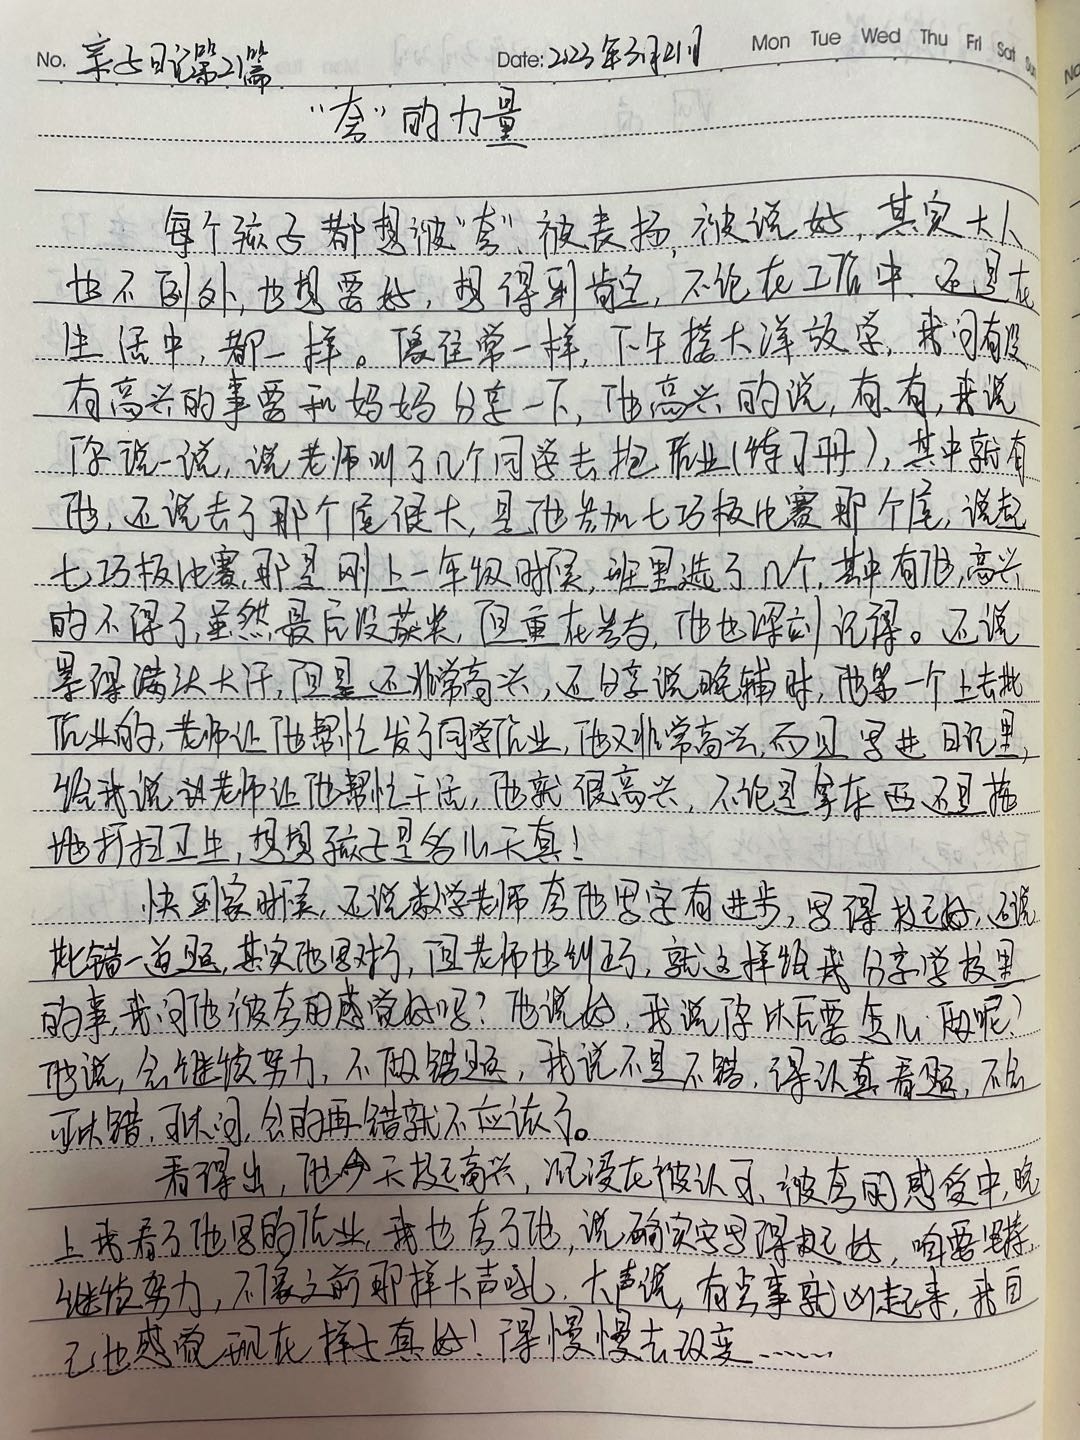 No. 亲子日记第21篇 Date: 2023年3月21日 Mon Tue Wed Thu Fri Sat Sun
"夸"的力量
每个孩子都想被"夸",被表扬,被说好,其实大人
也不例外,也想要好,想得到肯定,不论在工作中、还是在
生活中,都一样。像往常一样,下午接大洋放学,我问有没
有高兴的事要和妈妈分享一下,他高兴的说,有、有,我说
你说一说,说老师叫了几个同学去抱作业(练习册),其中就有
他,还说去了那个屋很大,是他参加七巧板比赛那个屋,说起
七巧板比赛,那是刚上一年级时候,班里选了几个,其中有他,高兴
的不得了,虽然最后没获奖,但重在参与,他也深刻记得。还说
累得满头大汗,但是还非常高兴,还分享说晚辅时,他第一个上去批
作业的,老师让他帮忙发了同学作业,他又非常高兴,而且写进日记里,
给我说说老师让他帮忙干活,他就很高兴,不论是拿东西还是拖
地打扫卫生,想想孩子是多么天真!
快到家时候,还说数学老师夸他写字有进步,写得挺好,还说
批错一道题,其实他写对了,但老师也纠正了,就这样给我分享学校里
的事,我问他被夸的感觉好吗?他说好,我说你以后要怎么做呢?
他说,会继续努力,不做错题,我说不是不错,得认真看题,不会
可以错,可以问,会的再错就不应该了。
看得出,他今天挺高兴,沉浸在被认可、被夸的感受中,晚
上我看了他写的作业,我也夸了他,说确实字写得挺好,咱要坚持,
继续努力,不像之前那样大声吼、大声说,有点事就凶起来,我自
己也感觉现在样子真好!得慢慢去改变……